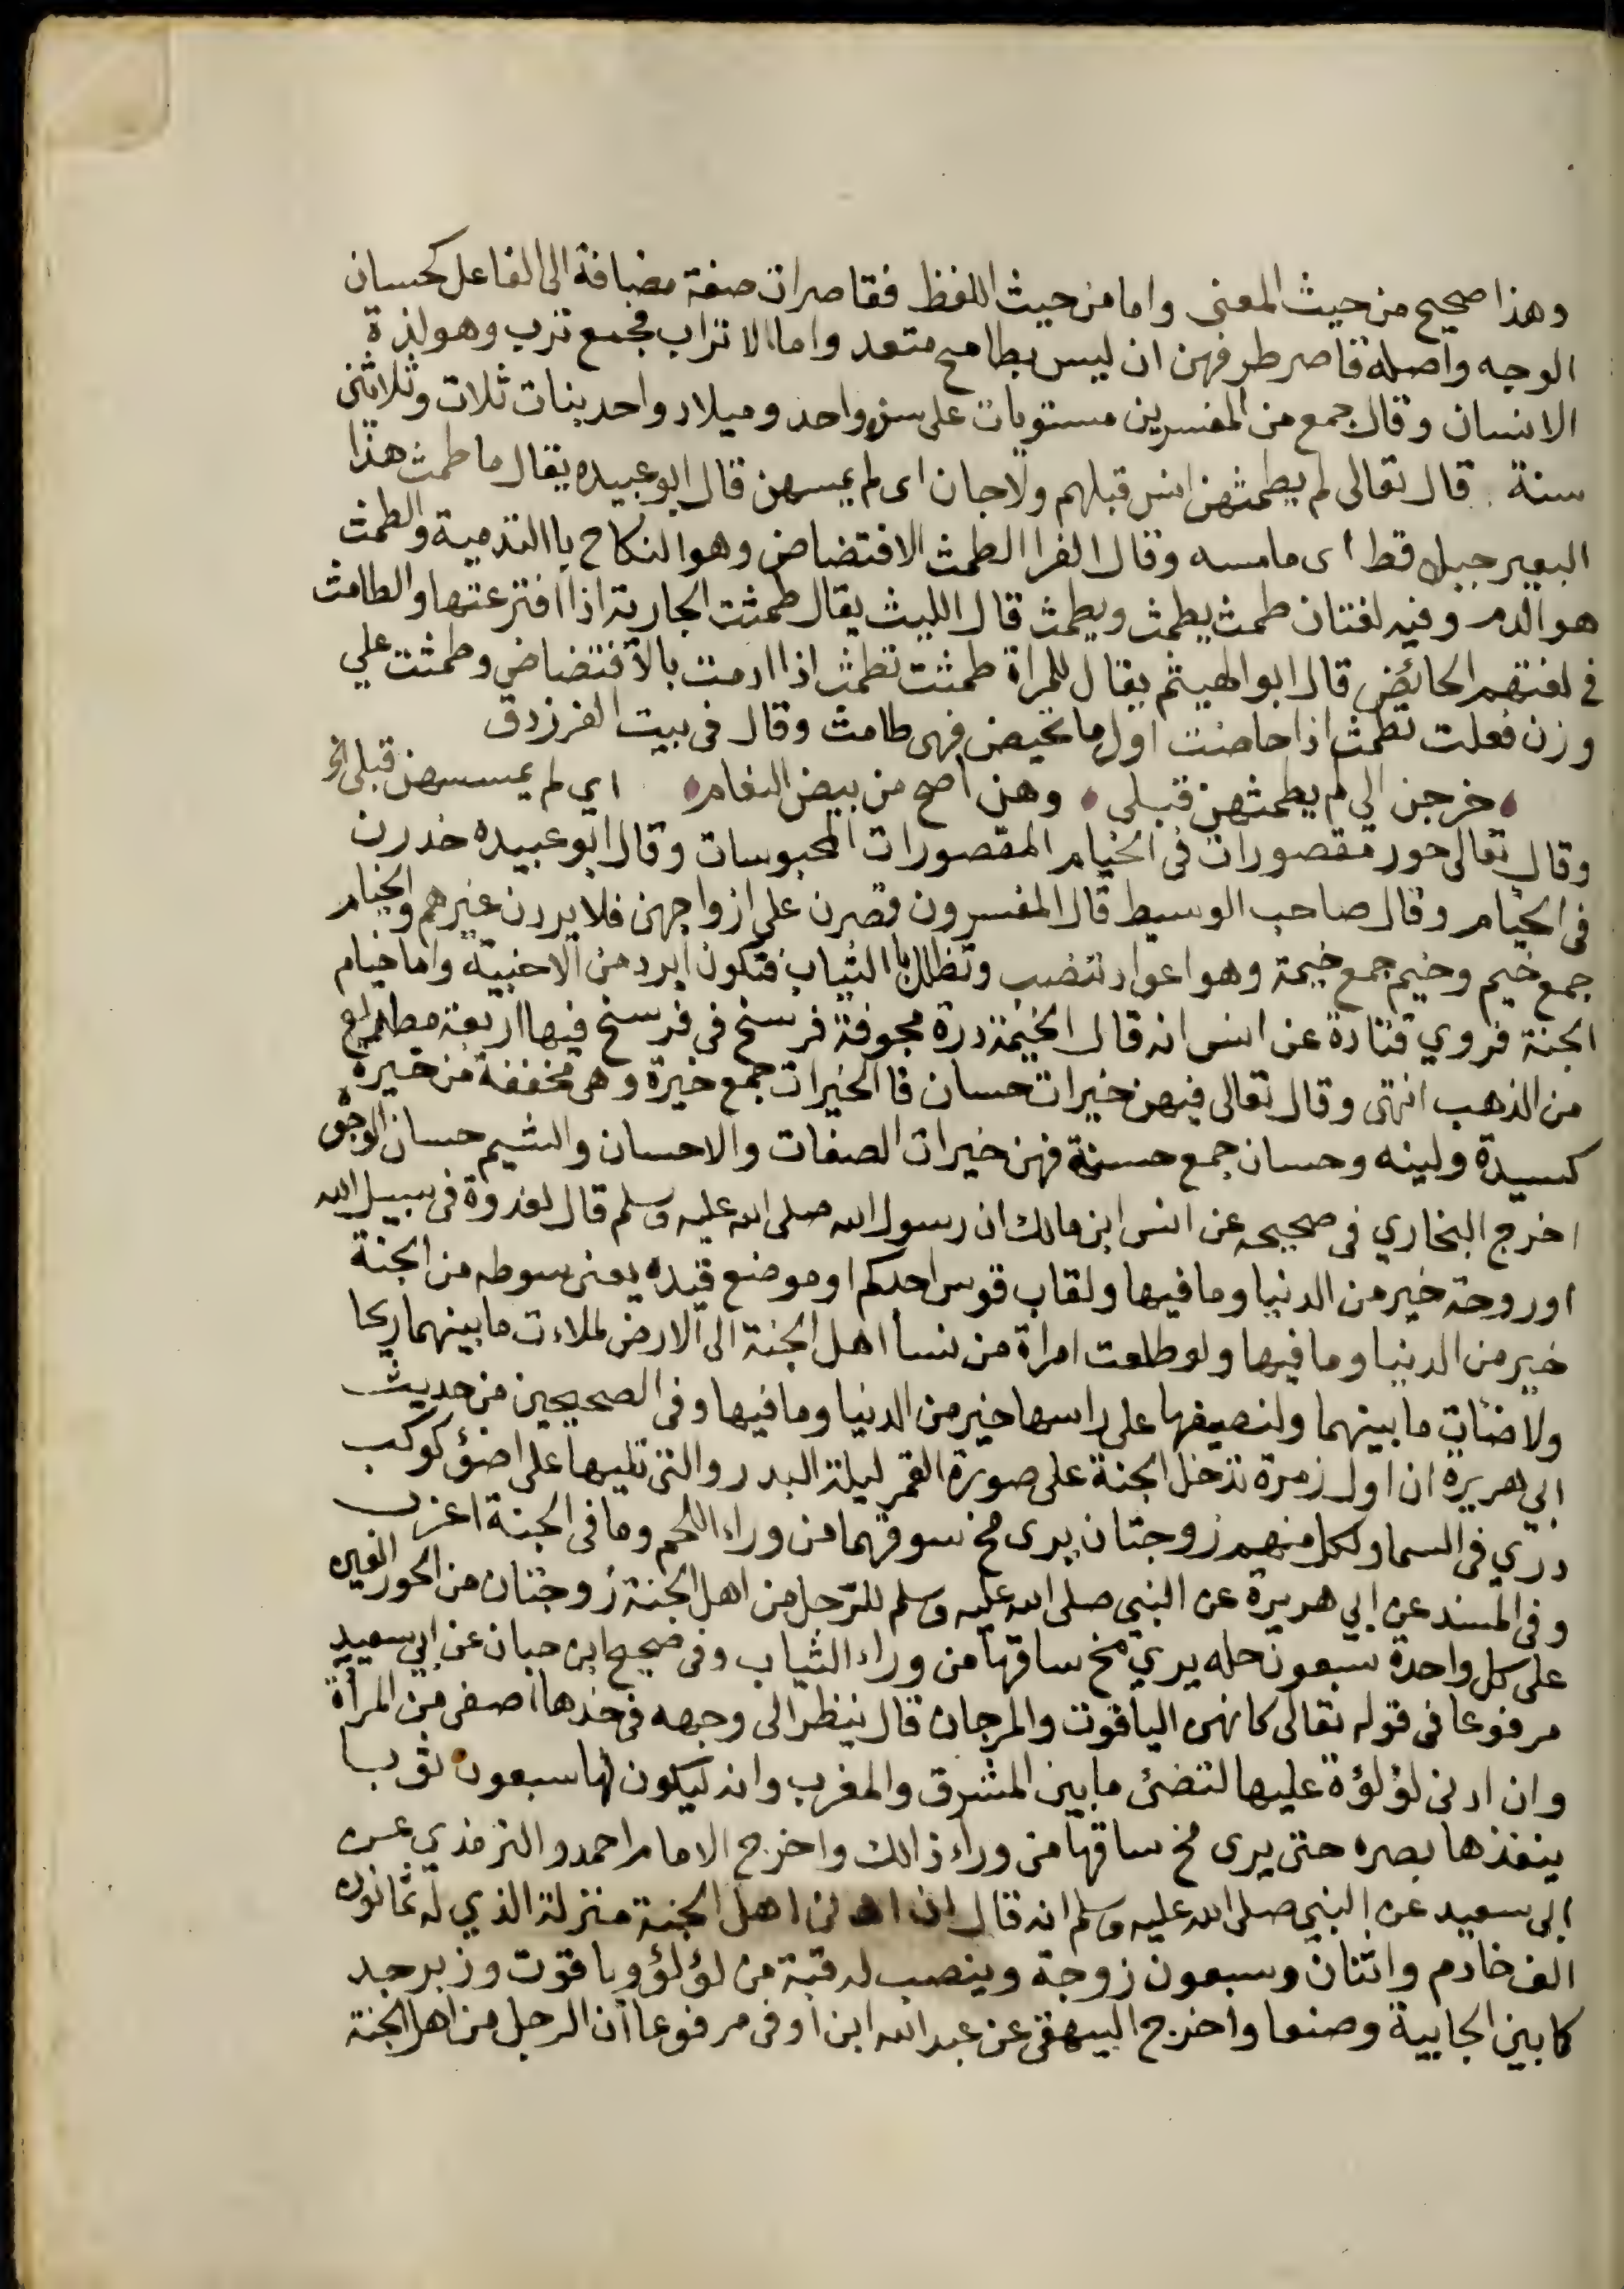 وهذا صحيح من حيث المعنى واما من حيث اللفظ فقاصرات صفة مضافة الى الفاعل كحسان
الوجه واصله قاصر طرفهن ان ليس بطامح متعد واما الاتراب فجمع ترب وهو لذة
الانسان وقال جمع من المفسرين مستويات على سن واحد وميلاد واحد بنات ثلاث وثلاثين
سنة قال تعالى لم يطمثهن انس قبلهم ولا جان اى لم يمسهن قال ابو عبيده يقال ما طمث هذا
البعير حبل قط اى ما مسه وقال الفرا الطمث الافتضاض وهو النكاح باالتدمية والطمث
هو الدم وفيه لغتان طمث يطمث ويطمث قال الليث يقال طمثت الجارية اذا افترعتها والطامث
في لغتهم الحائض قال ابوالهيثم يقال للمراة طمثت تطمث اذا ادمت بالافتضاض وطمثت علي
وزن فعلت تطمث اذا حاضت اول ما تحيض فهى طامث وقال فى بيت الفرزدق
خرجن الي لم يطمثهن قبلى وهن اصح من بيض النعام اي لم يمسسهن قبلى الخ
وقال تعالى حور مقصورات فى الخيام المقصورات المحبوسات وقال ابو عبيده خدرن
فى الخيام وقال صاحب الوسيط قال المفسرون قصرن على ازواجهن فلا يردن غيرهم والخيام
جمع خيم وخيم جمع خيمة وهو اعواد تنصب وتظلل باالثياب فتكون ابرد من الاخبية واما خيام
الجنة فروي قتادة عن انس انه قال الخيمة درة مجوفة فرسخ فى فرسخ فيها اربعة مصراع
من الذهب انتهى وقال تعالى فيهن خيرات حسان فاالخيرات جمع خيرة وهى مخففة من خيرة
كسيدة ولينه وحسان جمع حسنة فهن خيرات الصفات والاحسان والشيم حسان الوجوه
اخرج البخاري فى صحيحه عن انس ابن مالك ان رسول الله صلى الله عليه وسلم قال لغدوة فى سبيل الله
اوروحة خير من الدنيا وما فيها ولقاب قوس احدكم او موضع قيده يعنى سوطه من الجنة
خير من الدنيا وما فيها ولو طلعت امراة من نسا اهل الجنة الى الارض لملاءت ما بينهما ريحا
ولاضئات ما بينهما ولنصيفها على راسها خير من الدنيا وما فيها وفى الصحيحين من حديث
ابى هريرة ان اول زمرة تدخل الجنة على صورة القمر ليلة البدر والتى تليها على اضئو كوكب
درّي فى السما ولكل منهم زوجتان يرى مخ سوقهما من وراء اللحم وما فى الجنة اعزب
وفى المسند عن ابي هريرة عن النبي صلى الله عليه وسلم للرّجل من اهل الجنة زوجتان من الحور العين
على كل واحدة سبعون حله يري مخ ساقها من وراء الثياب وفى صحيح ابن حبان عن ابي سعيد
مرفوعا فى قوله تعالى كانهن الياقوت والمرجان قال ينظر الى وجهه فى خدها اصفى من المرأة
وان ادنى لؤلؤة عليها لتضئ ما بين المشرق والمغرب وانه ليكون لها سبعون ثوبا
ينفذها بصره حتى يرى مخ ساقها من وراء ذالك واخرج الامام احمد والترمذي عن
ابى سعيد عن النبي صلى الله عليه وسلم انه قال ان ادنى اهل الجنة منزلة الذي له ثمانون
الف خادم واثنان وسبعون زوجة وينصب له قبة من لؤلؤ وياقوت وزبرجد
كما بين الجابية وصنعا واخرج البيهقى عن عبد الله ابن اوفى مرفوعا ان الرجل من اهل الجنة